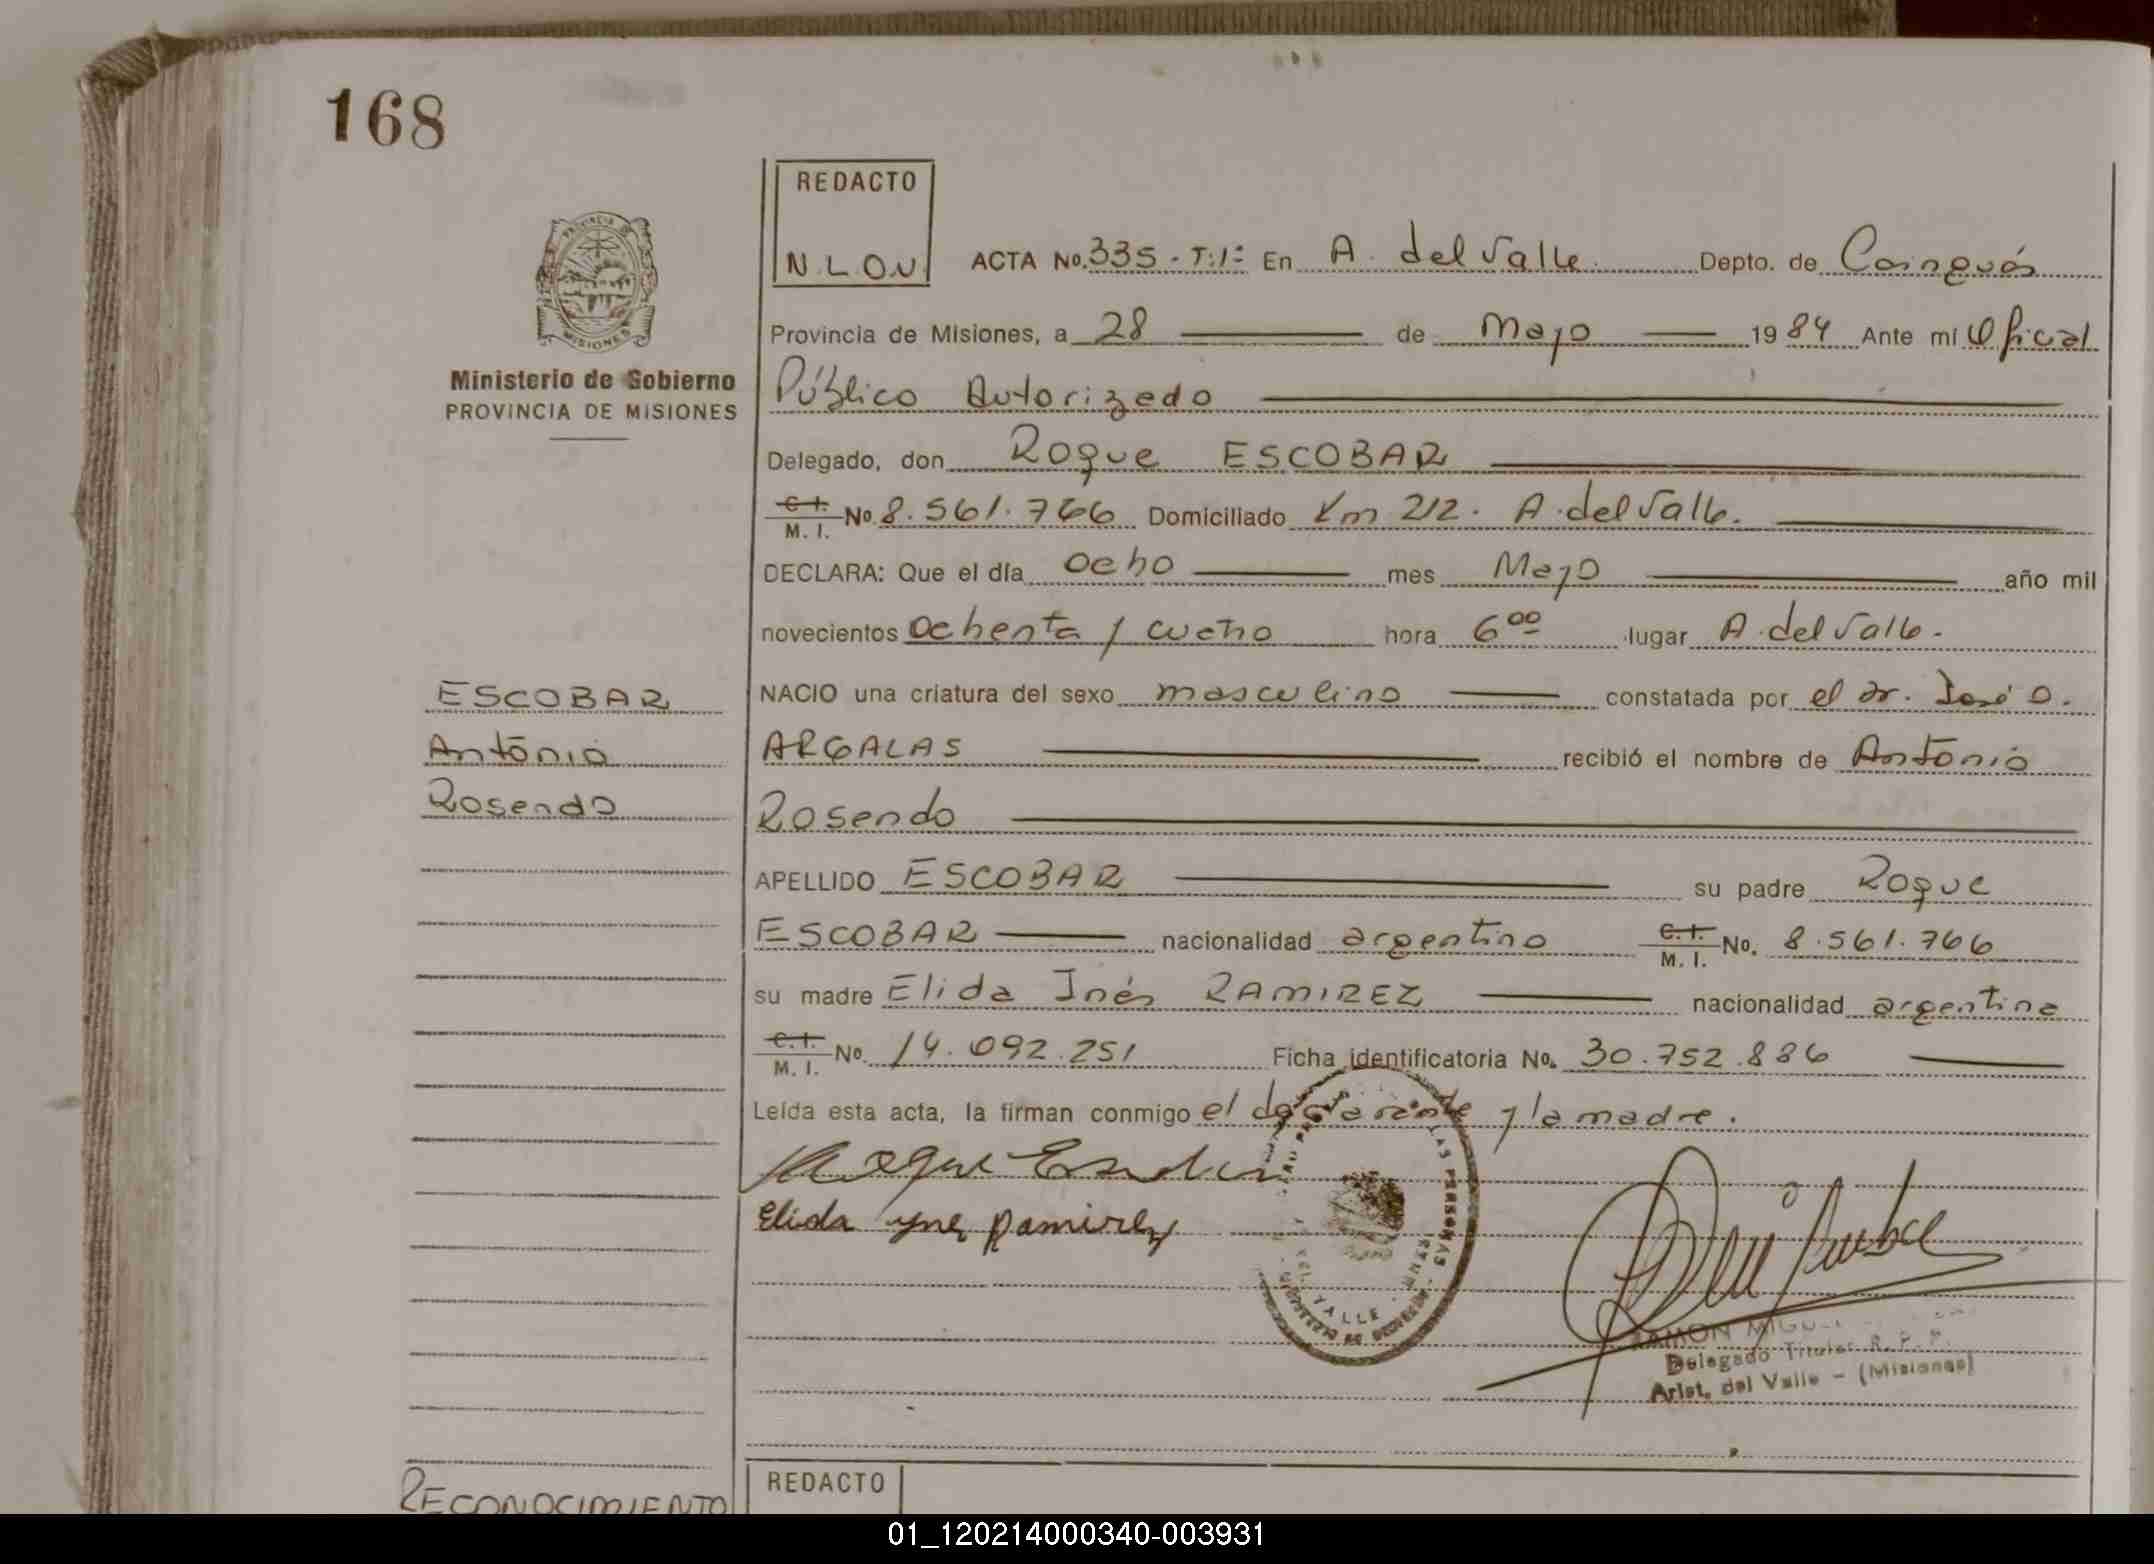 168
REDACTO
N.L.O.V.
ACTA No. 335 - T:1º En A. del Valle Depto. de Cainguás
PROVINCIA DE MISIONES
Ministerio de Gobierno
PROVINCIA DE MISIONES
Provincia de Misiones, a 28 de Mayo 1984 Ante mí Oficial
Público Autorizado
Delegado, don Roque ESCOBAR
C.I. M.I. No. 8.561.766 Domiciliado Km 212. A. del Valle.
DECLARA: Que el día Ocho mes Mayo año mil
novecientos Ochenta y cuatro hora 6 00 lugar A. del Valle.
ESCOBAR
Antonio
Rosendo
NACIO una criatura del sexo masculino constatada por el dr. José O.
ARGALAS recibió el nombre de Antonio
Rosendo
APELLIDO ESCOBAR su padre Roque
ESCOBAR nacionalidad argentino C.I. M.I. No. 8.561.766
su madre Elida Inés RAMIREZ nacionalidad argentina
C.I. M.I. No. 14.092.251 Ficha identificatoria No. 30.752.886
Leída esta acta, la firman conmigo el declarante y la madre.
Roque Escobar
Elida Yne Ramirez
LAS PERSONAS
VALLE
RAMON MIGU
Delegado Titular R. P. P.
Arist. del Valle - (Misiones)
RECONOCIMIENTO
REDACTO
01_120214000340-003931